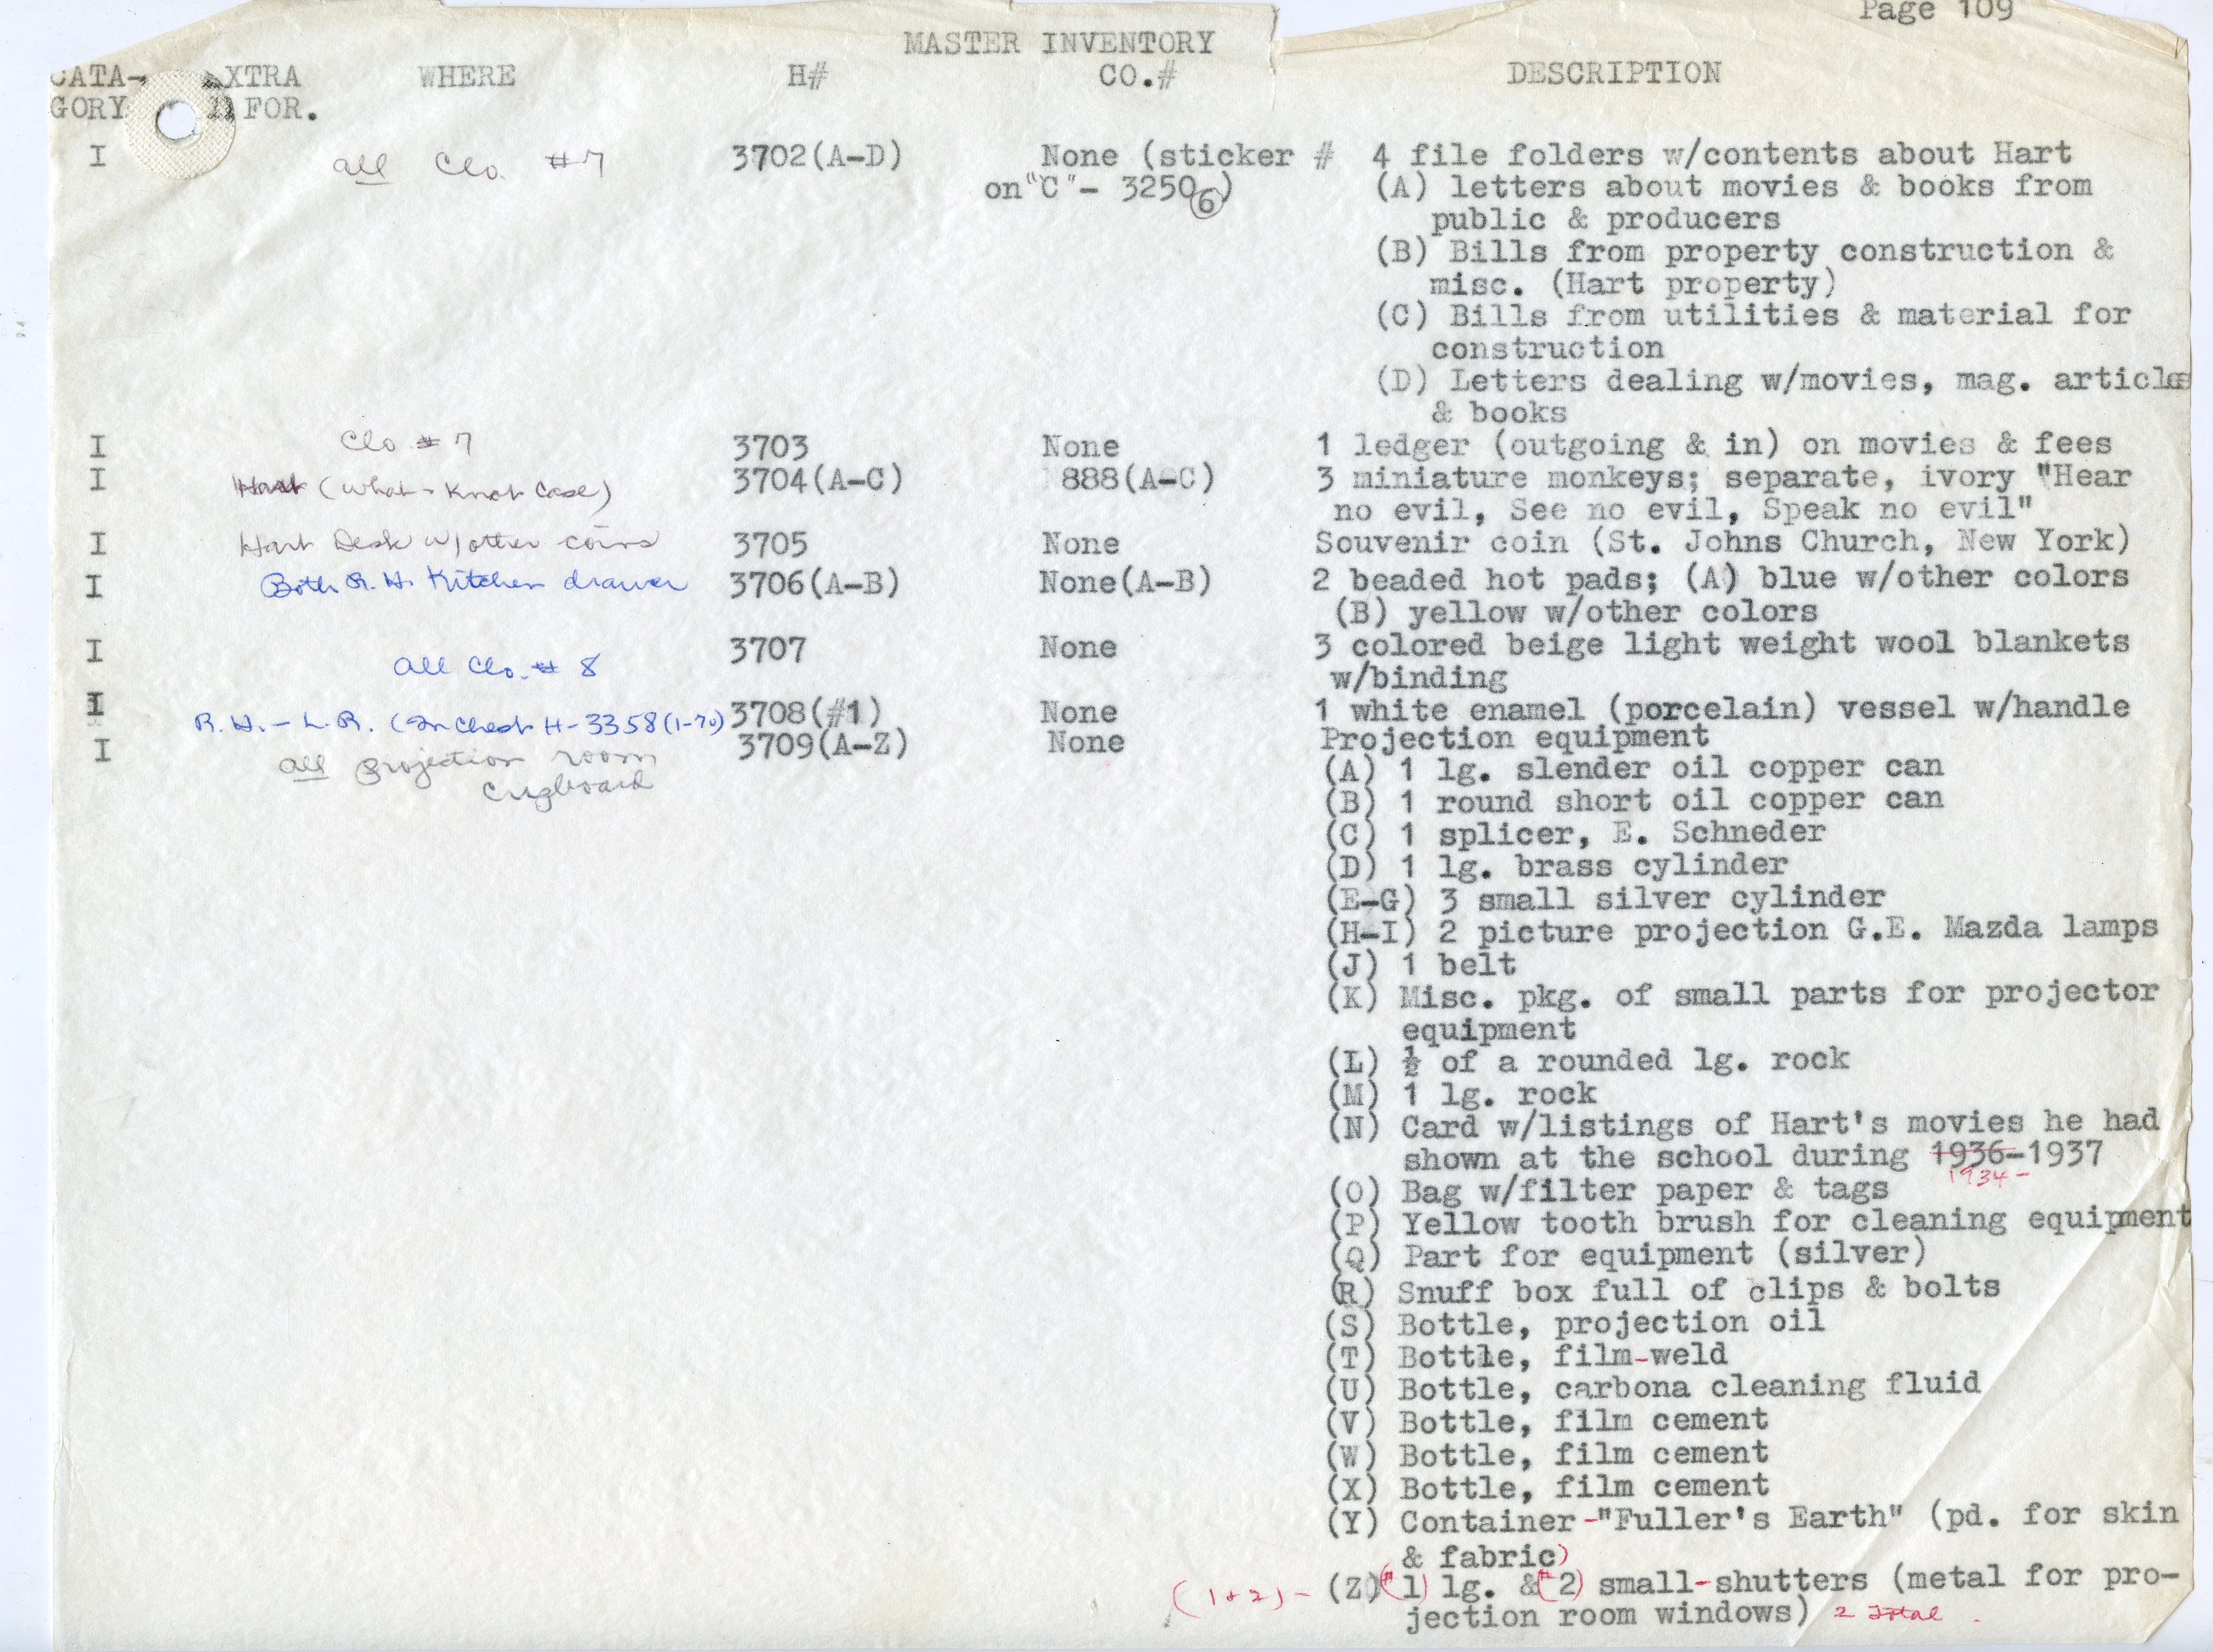 Page 109
MASTER INVENTORY
CATA- XTRA WHERE H# CO.# DESCRIPTION
GORY FOR.
I all Clo. #7 3702(A-D) None (sticker # 4 file folders w/contents about Hart
on "C" - 3250 6) (A) letters about movies & books from
public & producers
(B) Bills from property construction &
misc. (Hart property)
(C) Bills from utilities & material for
construction
(D) Letters dealing w/movies, mag. articles
& books
I Clo #7 3703 None 1 ledger (outgoing & in) on movies & fees
I Hart (What-Knot Case) 3704(A-C) 888(A-C) 3 miniature monkeys; separate, ivory "Hear
no evil, See no evil, Speak no evil"
I Hart Desk w/other coins 3705 None Souvenir coin (St. Johns Church, New York)
I Both R.H. Kitchen drawer 3706(A-B) None(A-B) 2 beaded hot pads; (A) blue w/other colors
(B) yellow w/other colors
I All Clo. #8 3707 None 3 colored beige light weight wool blankets
w/binding
I R.H. - L.R. (In Chest H-3358(1-70) 3708(#1) None 1 white enamel (porcelain) vessel w/handle
I all projection room 3709(A-Z) None Projection equipment
cupboard (A) 1 lg. slender oil copper can
(B) 1 round short oil copper can
(C) 1 splicer, E. Schneder
(D) 1 lg. brass cylinder
(E-G) 3 small silver cylinder
(H-I) 2 picture projection G.E. Mazda lamps
(J) 1 belt
(K) Misc. pkg. of small parts for projector
equipment
(L) ½ of a rounded lg. rock
(M) 1 lg. rock
(N) Card w/listings of Hart's movies he had
shown at the school during 1936-1937
1934-
(O) Bag w/filter paper & tags
(P) Yellow tooth brush for cleaning equipment
(Q) Part for equipment (silver)
(R) Snuff box full of clips & bolts
(S) Bottle, projection oil
(T) Bottle, film-weld
(U) Bottle, carbona cleaning fluid
(V) Bottle, film cement
(W) Bottle, film cement
(X) Bottle, film cement
(Y) Container-"Fuller's Earth" (pd. for skin
& fabric)
(1+2)- (Z)(#1) lg. &(#2) small-shutters (metal for pro-
jection room windows) 2 total.